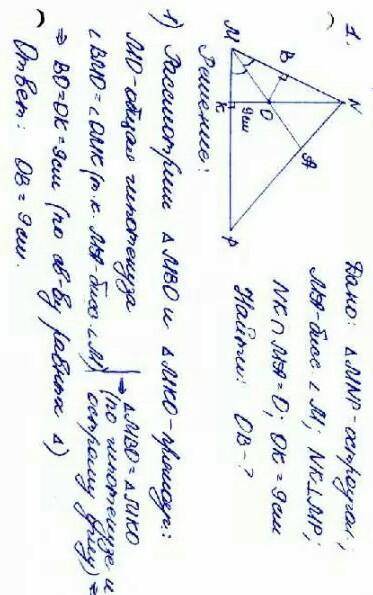 1.
N
B
O
A
9см
M
K
P
Дано: ΔMNP-остроугол.;
MA-бисс ∠M; NK⊥MP;
NK∩MA=O; OK=9см
Найти: OB-?
Решение:
1) Рассмотрим ΔMBO и ΔMKO-прямоуг.:
MO-общая гипотенуза
∠BMO=∠OMK (т.к. MA-бисс. ∠M)
⇒ ΔMBO=ΔMKO
(по гипотенузе и
острому углу) ⇒
⇒ BO=OK=9см (по св-ву равных Δ)
Ответ: OB=9см.